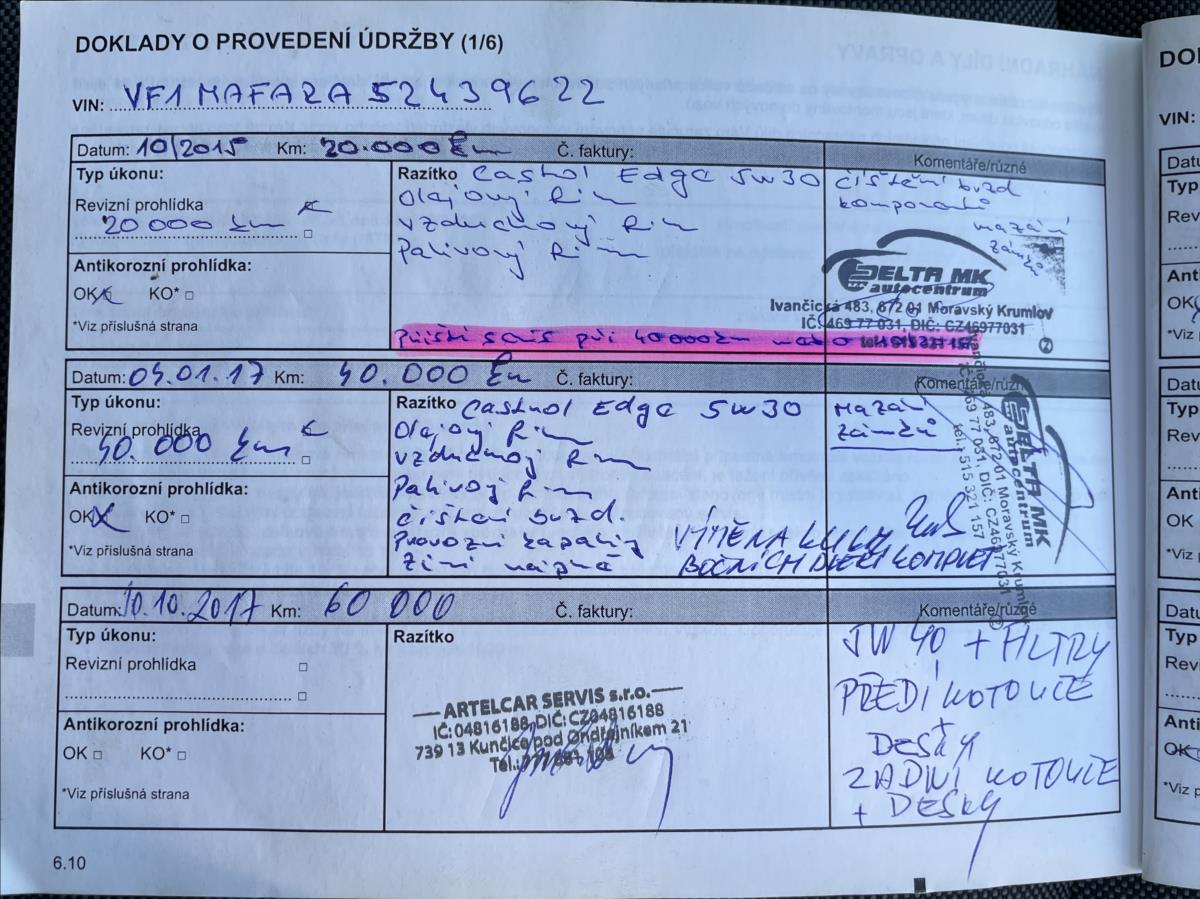 DOKLADY O PROVEDENÍ ÚDRŽBY (1/6)
VIN: VF1 MAFARA 52439622
Datum: 10/2015 Km: 20.000 km Č. faktury:
Komentáře/různé
Typ úkonu:
Revizní prohlídka
20 000 km
Antikorozní prohlídka:
OK KO*
*Viz příslušná strana
Razítko Castrol Edge 5W30
Olejový filtr
Vzduchový filtr
Palivový filtr
čištění brzd
komponentů
mazání
zámků
DELTA MK
autocentrum
Ivančická 483, 672 01 Moravský Krumlov
IČ: 469 77 031, DIČ: CZ46977031
Příští servis při 40000km nebo
Datum: 04.01.17 Km: 40.000 km Č. faktury:
Komentáře/různé
Typ úkonu:
Revizní prohlídka
40.000 km
Antikorozní prohlídka:
OK KO*
*Viz příslušná strana
Razítko Castrol Edge 5W30
Olejový filtr
Vzduchový filtr
Palivový filtr
čištění brzd.
Provozní kapaliny
Zimní náplně
Mazání
zámků
VÝMĚNA KLIK
BOČNÍCH DVEŘÍ KOMPLET
DELTA MK
autocentrum
Ivančická 483, 672 01 Moravský Krumlov
IČ: 469 77 031, DIČ: CZ46977031
tel.: 515 321 157
Datum: 10.10.2017 Km: 60 000 Č. faktury:
Komentáře/různé
Typ úkonu:
Revizní prohlídka
Antikorozní prohlídka:
OK KO*
*Viz příslušná strana
Razítko
ARTELCAR SERVIS s.r.o.
IČ: 04816188, DIČ: CZ04816188
739 13 Kunčice pod Ondřejníkem 21
5W 40 + FILTRY
PŘEDÍ KOTOUČE
+
DESKY
ZADNÍ KOTOUČE
+ DESKY
6.10
VIN:
Typ